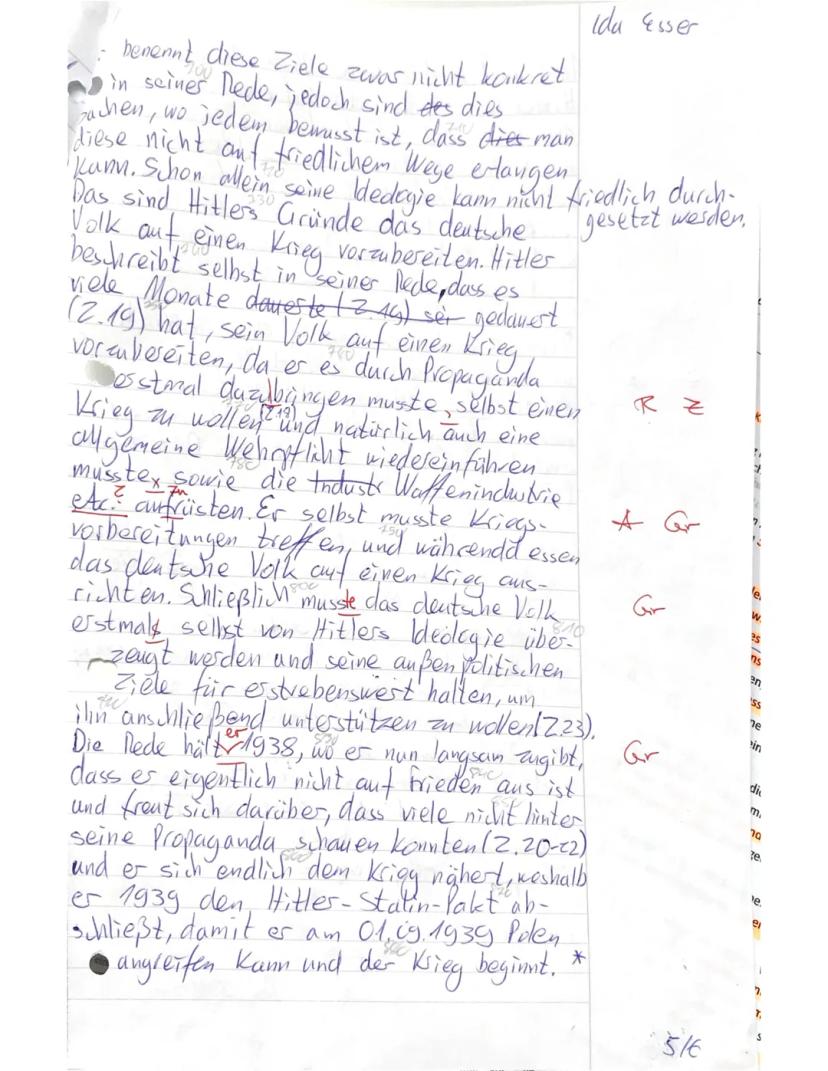 Ida Esser
benennt diese Ziele zwar nicht konkret
in seiner Rede, jedoch sind des dies
sachen, wo jedem bewusst ist, dass dies man
diese nicht auf friedlichem Wege erlangen
kann. Schon allein seine Ideologie kann nicht friedlich durch-
gesetzt werden.
Das sind Hitlers Gründe das deutsche
Volk auf einen Krieg vorzubereiten. Hitler
beschreibt selbst in seiner Rede, dass es
viele Monate dauerte (Z.19) sei gedauert
(Z.19) hat, sein Volk auf einen Krieg
vorzubereiten, da er es durch Propaganda
erstmal dazu bringen musste, selbst einen
R Z
Krieg zu wollen (Z.18) und natürlich auch eine
allgemeine Wehrpflicht wiedereinführen
musste, sowie die Industr Waffenindustrie
etc.? aufzurüsten. Er selbst musste Kriegs-
A Gr
vorbereitungen treffen, und währenddessen
das deutsche Volk auf einen Krieg aus-
richten. Schließlich musste das deutsche Volk
Gr
erstmals selbst von Hitlers Ideologie über-
zeugt werden und seine außenpolitischen
Ziele für erstrebenswert halten, um
ihn anschließend unterstützen zu wollen (Z.23).
Die Rede hält er 1938, wo er nun langsam zugibt,
Gr
dass er eigentlich nicht auf Frieden aus ist
und freut sich darüber, dass viele nicht hinter
seine Propaganda schauen konnten (Z.20-22)
und er sich endlich dem Krieg nähert, weshalb
er 1939 den Hitler-Stalin-Pakt ab-
schließt, damit er am 01.09.1939 Polen
angreifen kann und der Krieg beginnt. *
5/6